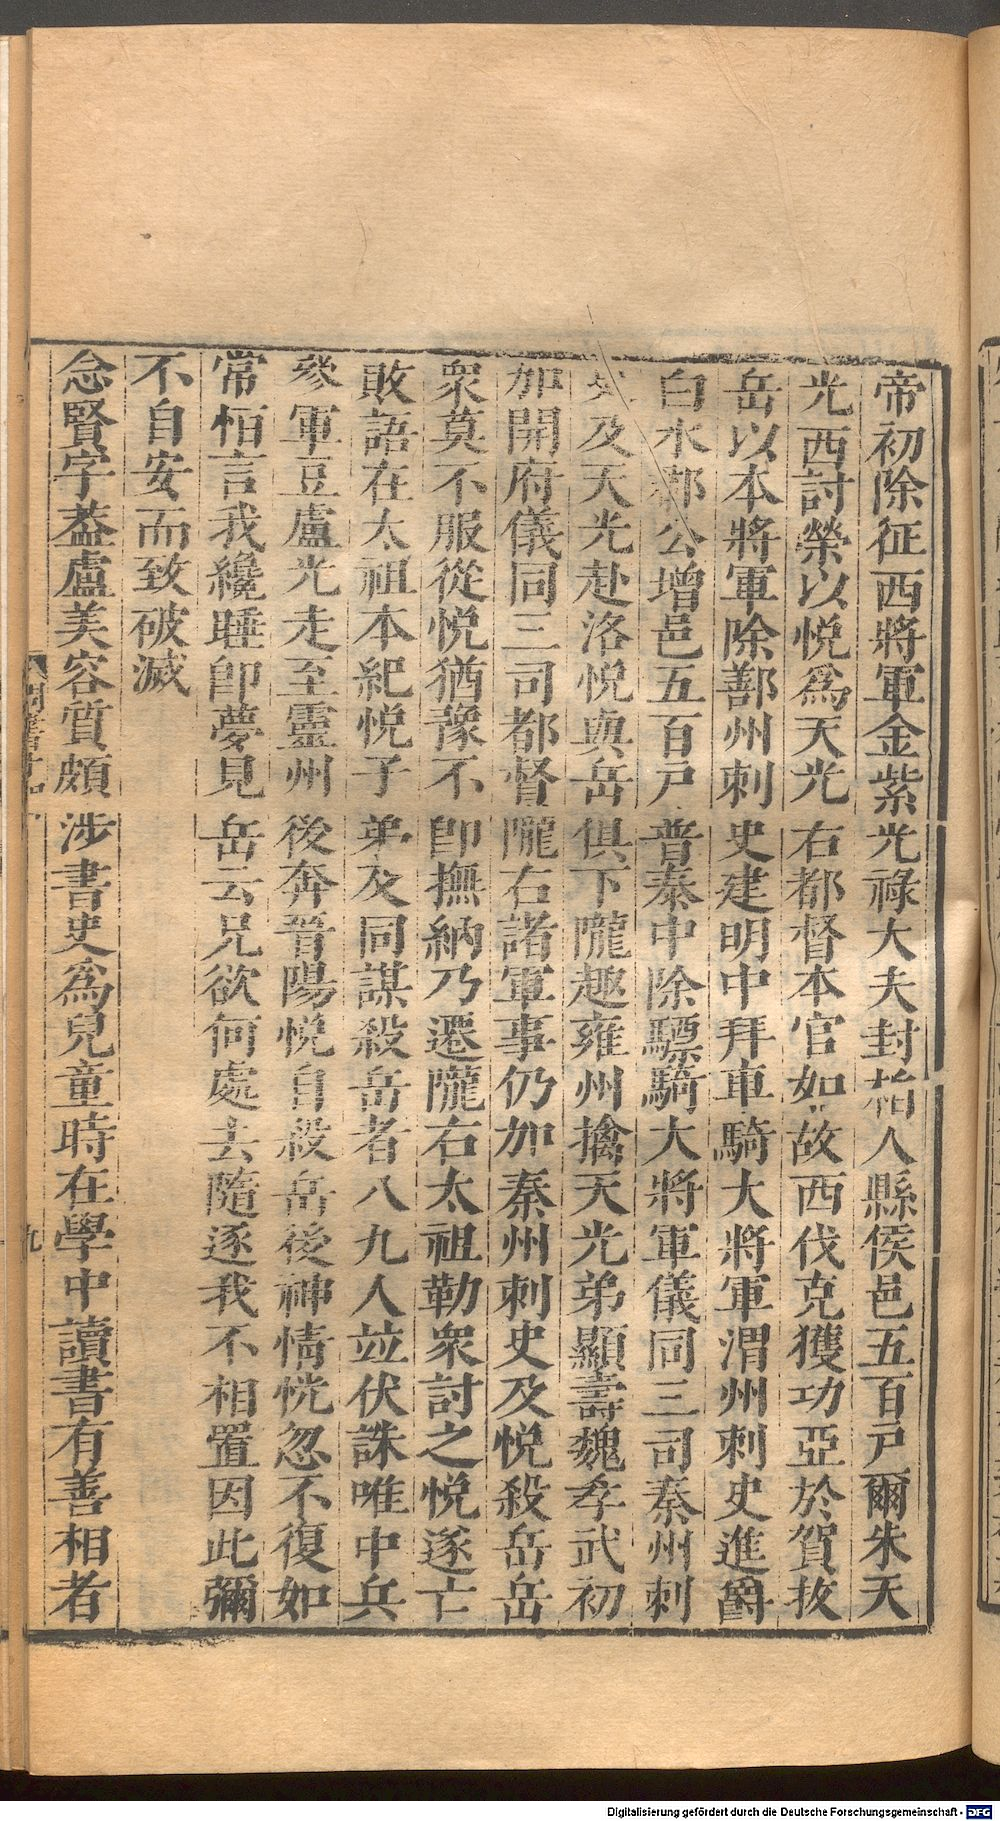 帝初除征西將軍金紫光祿大夫封柏人縣侯邑五百戸爾朱天
光西討榮以悅爲天光右都督本官如故西伐克獲功亞於賀拔
岳以本將軍除鄯州刺史建明中拜車騎大將軍渭州刺史進爵
白水郡公增邑五百戸普秦中除驃騎大將軍儀同三司秦州刺
史及天光赴洛悅與岳俱下隴趣雍州擒天光弟顯壽魏孝武初
加開府儀同三司都督隴右諸軍事仍加秦州刺史及悅殺岳岳
衆莫不服從悅猶豫不卽撫納乃遷隴右太祖勒衆討之悅遂亡
敗語在太祖本紀悅子弟及同謀殺岳者八九人竝伏誅唯中兵
參軍豆盧光走至靈州後奔晉陽悅自殺岳後神情恍忽不復如
常恒言我纔睡卽夢見岳云兄欲何處去隨逐我不相置因此彌
不自安而致破滅
念賢字葢盧美容質頗涉書史爲兒童時在學中讀書有善相者
九
Digitalisierung gefördert durch die Deutsche Forschungsgemeinschaft - DFG